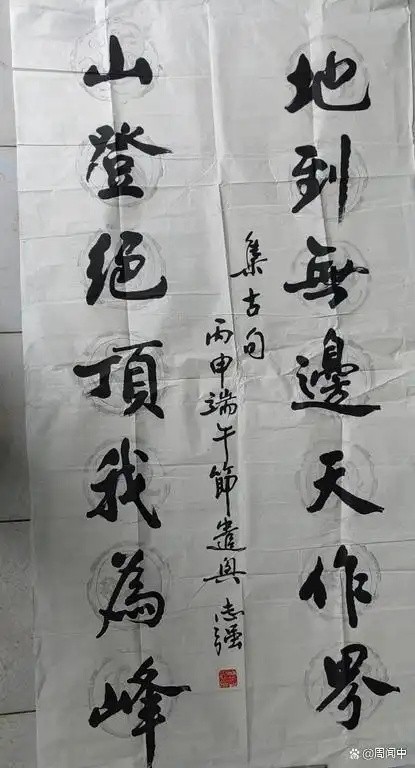 地到無邊天作界
山登絕頂我為峰
集古句
丙申端午節遣興 志强
@周闻中